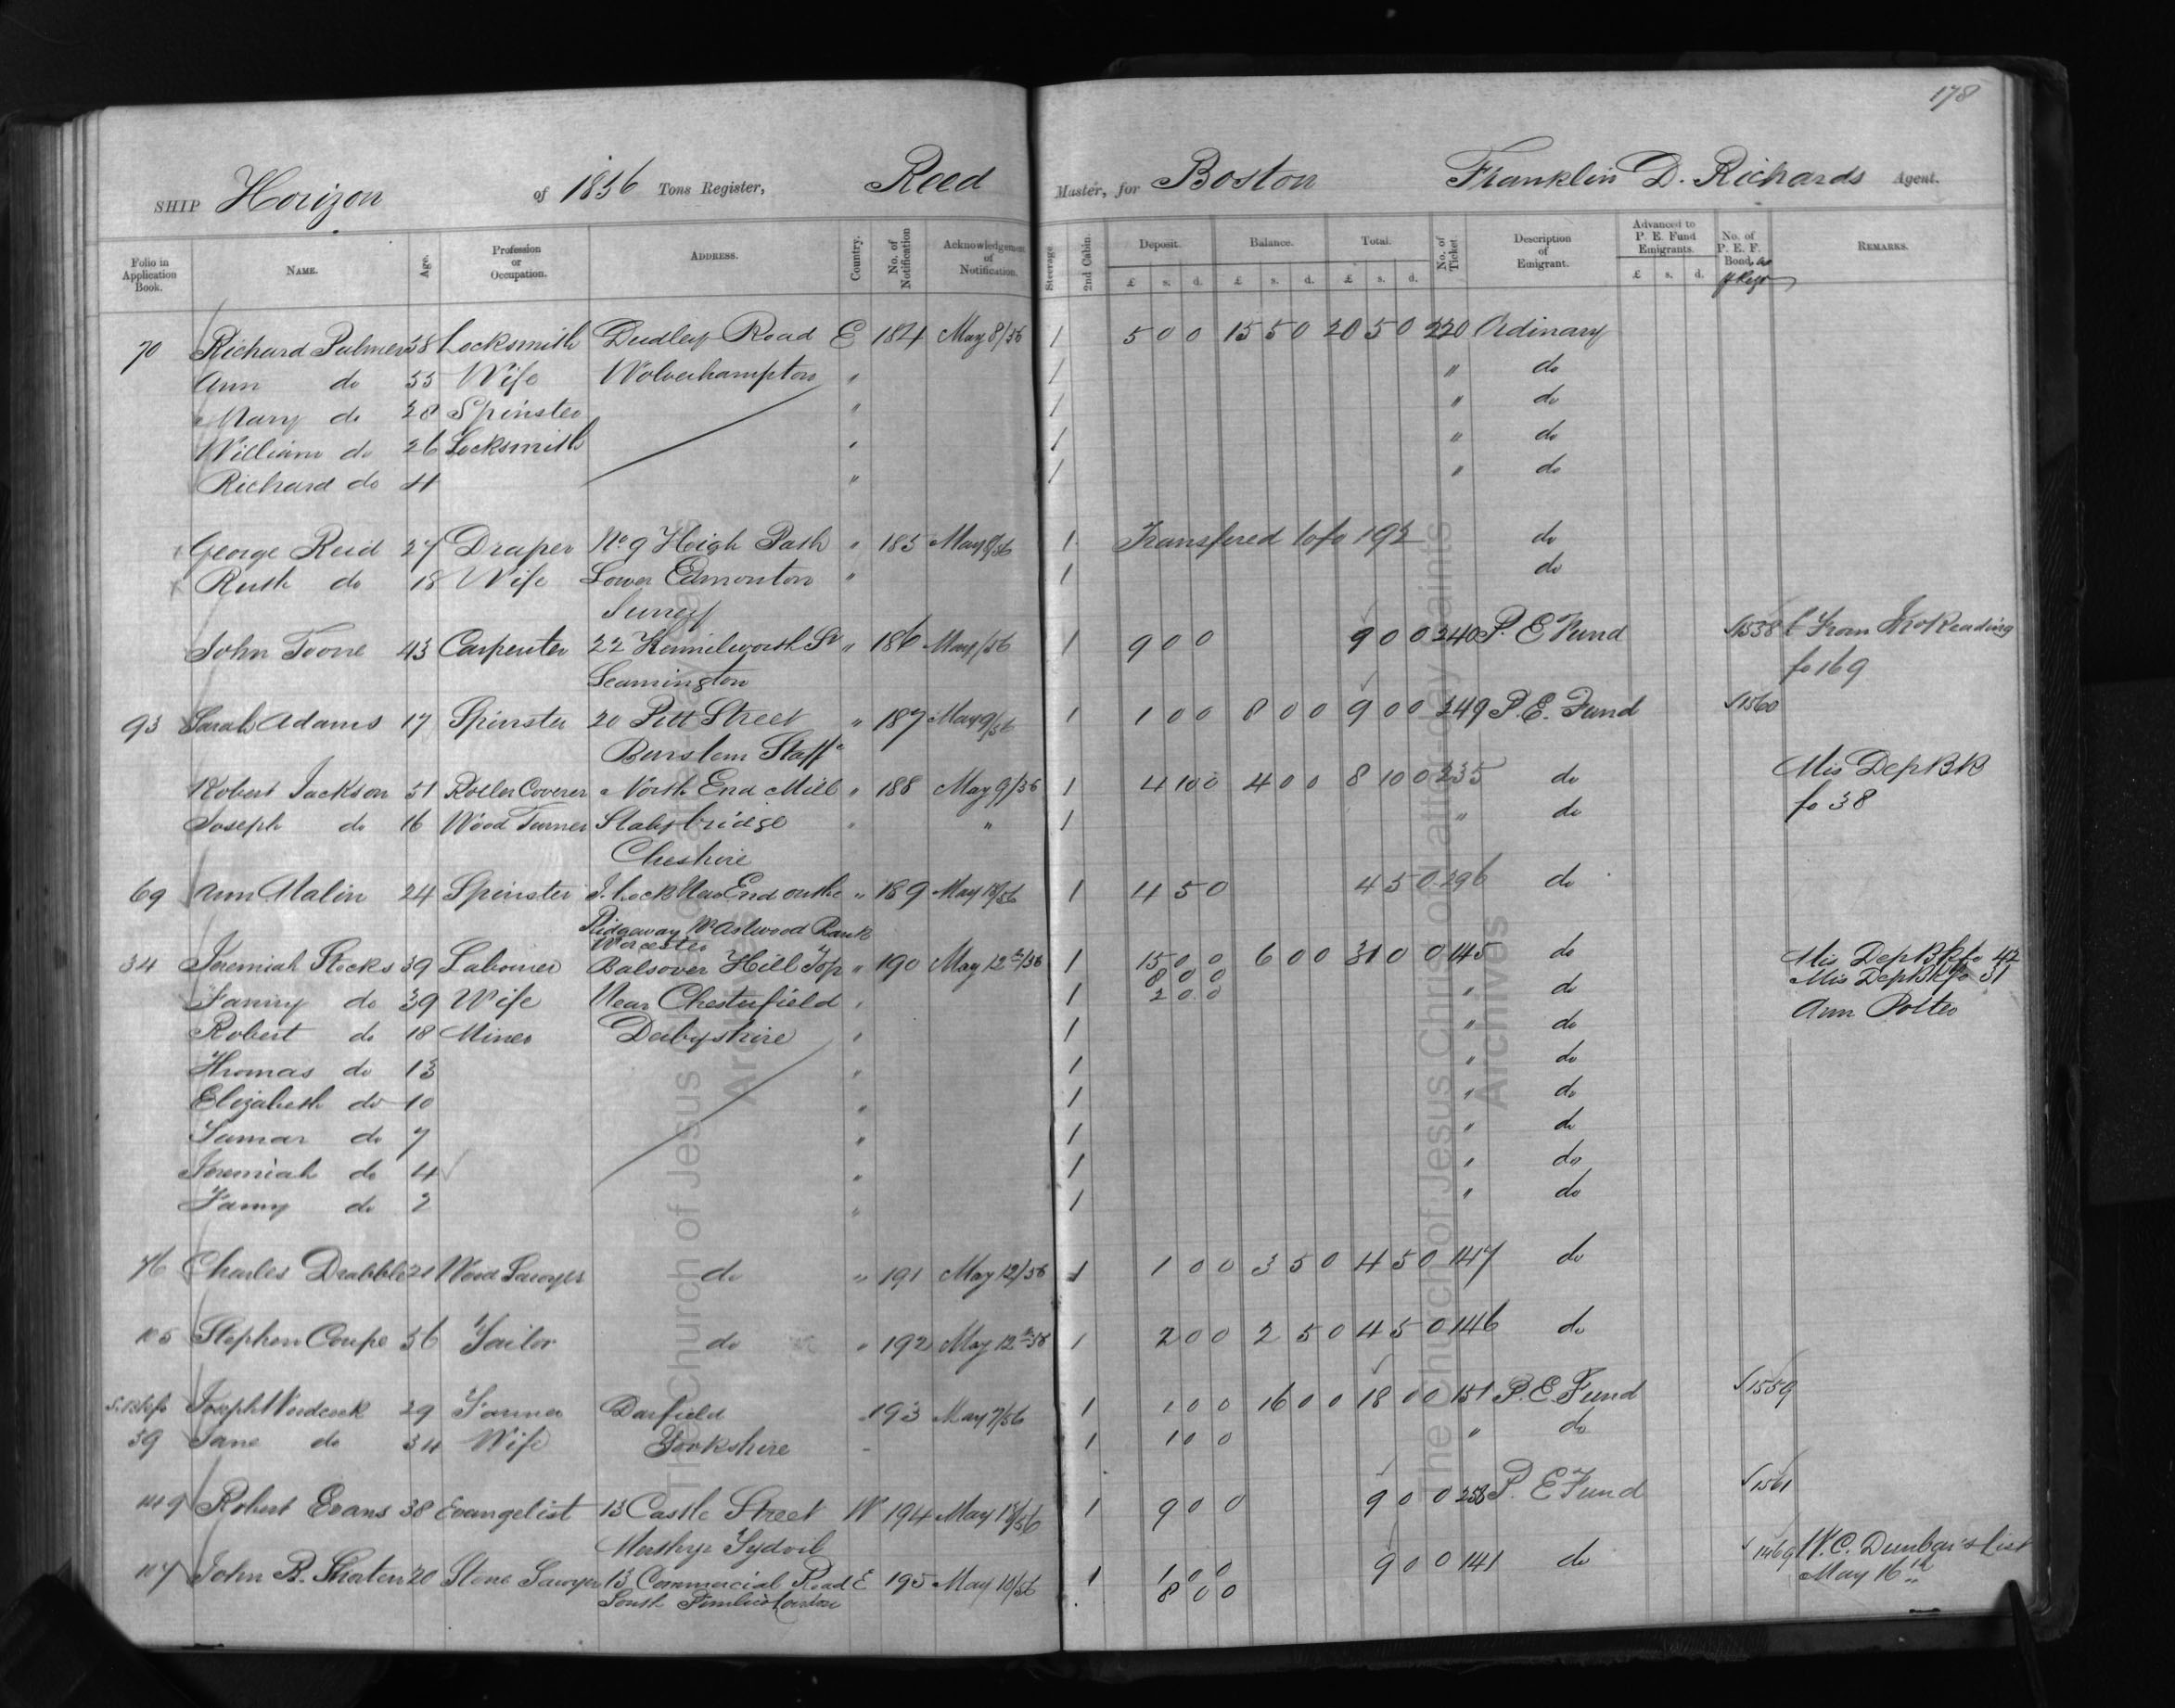 178
SHIP Horizon of 1856 Tons Register, Reed Master, for Boston Franklin D. Richards Agent.
Folio in Application Book. NAME. Age. Profession or Occupation. ADDRESS. Country. No. of Notification Acknowledgement of Notification. Steerage 2nd Cabin. Deposit. Balance. Total. No. of Ticket Description of Emigrant. Advanced to P. E. Fund Emigrants. No. of P. E. F. Bond. REMARKS.
£ s. d. £ s. d. £ s. d. £ s. d.
70 Richard Palmer 58 Locksmith Dudley Road E 184 May 8/56 1 5 0 0 15 5 0 20 5 0 220 Ordinary
Ann do 55 Wife Wolverhampton " 1 " do
Mary do 28 Spinster " 1 " do
William do 26 Locksmith " 1 " do
Richard do 4 " 1 " do
George Reid 27 Draper No. 9 Heigh Path " 185 May 8/56 1 Transfered to fo 192 do
Ruth do 18 Wife Lower Edmonton " 1 do
Surrey
John Toone 43 Carpenter 22 Kennilworth St " 186 May /56 1 9 0 0 9 0 0 240 P. E Fund 1558 From Reading
Leamington fo 169
93 Sarah Adams 17 Spinster 20 Pitt Street " 187 May 9/56 1 1 0 0 8 0 0 9 0 0 249 P. E. Fund 1560
Burslem Staff
Robert Jackson 51 Roller Coverer North End Mill " 188 May 9/56 1 4 10 0 4 0 0 8 10 0 235 do Mis Dep BK
Joseph do 16 Wood Turner Stalybridge " " 1 " do fo 38
Cheshire
69 Ann Malin 24 Spinster End on the " 189 May 12/56 1 4 5 0 4 5 0 296 do
Ridgeway Astwood Bank
Worcester
34 Jeremiah Stocks 39 Labourer Balsover Hill Top " 190 May 12th/56 1 15 0 0 6 0 0 31 0 0 145 do Mis Dep Bk fo 42
8 0 0 Mis Dep Bk fo 31
Fanny do 39 Wife Near Chesterfield " 1 2 0 0 " do
Robert do 18 Miner Derbyshire " 1 " do Ann Porter
Thomas do 13 " 1 " do
Elizabeth do 10 " 1 " do
Tamar do 7 " 1 " do
Jeremiah do 4 " 1 " do
Fanny do 2 " 1 " do
76 Charles Drabble 21 Wood Sawyer do " 191 May 12/56 1 1 0 0 3 5 0 4 5 0 147 do
105 Stephen Coupe 36 Tailor do " 192 May 12th 56 1 2 0 0 2 5 0 4 5 0 146 do
Joseph Woodcock 29 Farmer Darfield " 193 May 7/56 1 1 0 0 16 0 0 18 0 0 151 P. E. Fund 1559
39 Jane do 34 Wife Yorkshire 1 1 0 0 " do
Robert Evans 38 Evangelist 13 Castle Street W 194 May 13/56 1 9 0 0 9 0 0 258 P. E Fund 1561
Merthyr Tydvil
107 John B. Shaten 20 Stone Sawyer 13 Commercial Road E 195 May 10/56 1 1 0 0 9 0 0 141 do 1469 W. C. Dunbar's List
South Pimlico London 8 0 0 May 16th
The Church of Jesus Christ of Latter-day Saints
Archives
The Church of Jesus Christ of Latter-day Saints
Archives